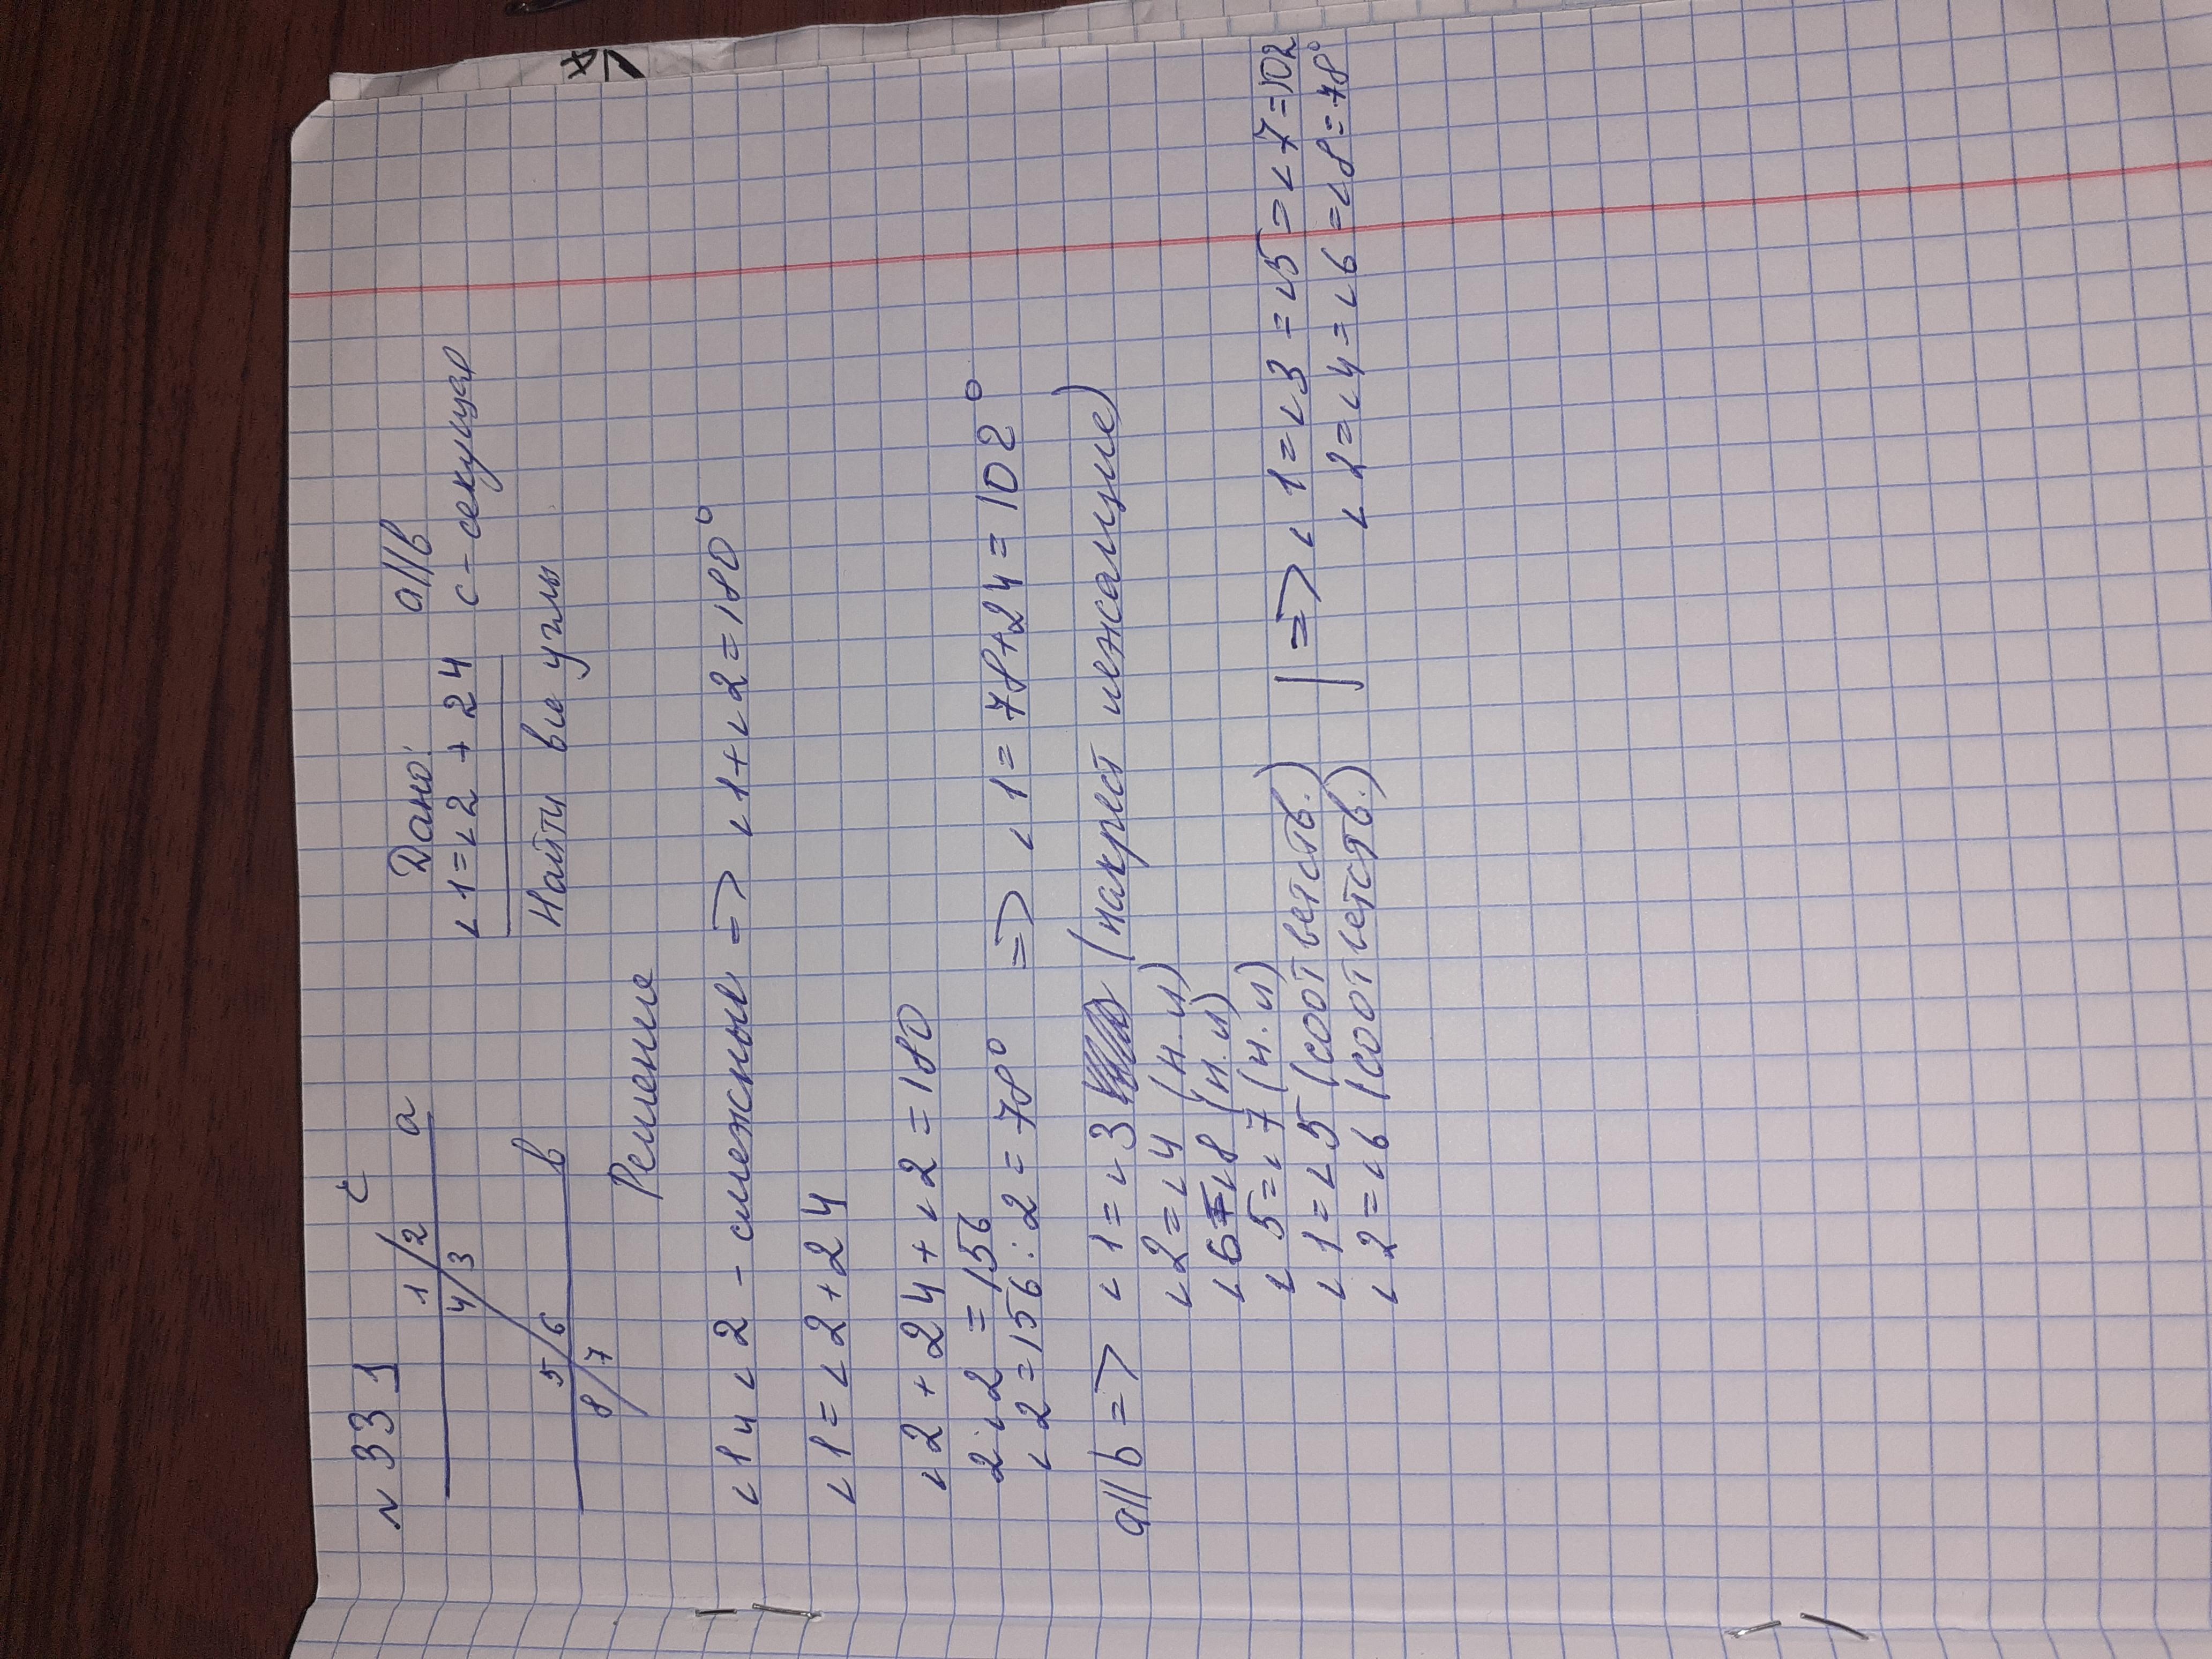 N 331
c
1 2 a
4 3
5 6 в
8 7
Дано: a||в
∠1=∠2 + 24 c - секущая
Найти все углы
Решение
∠1 и ∠2 - смежные => ∠1+∠2=180°
∠1=∠2+24
∠2+24+∠2=180
2·∠2=156
∠2=156:2=78° => ∠1=78+24=102°
a||b => ∠1=∠3 (накрест лежащие)
∠2=∠4 (н.л)
∠6=∠8 (н.л)
∠5=∠7 (н.л)
∠1=∠5 (соответств.) | => ∠1=∠3=∠5=∠7=102
∠2=∠6 (соответств.) ∠2=∠4=∠6=∠8=78°